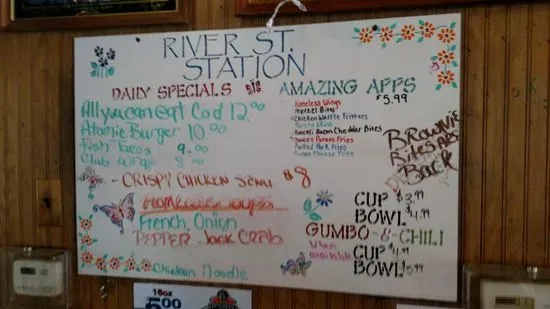 RIVER ST.
STATION
DAILY SPECIALS
All you can eat Cod 12.00
Atomic Burger 10.00
Fish Taco's 9.00
Club wrap 8.00
CRISPY CHICKEN $8
Homemade soups
French Onion
PEPPER Jack Crab
Chicken Noodle
AMAZING APPS
$5.99
Boneless Wings
Pretzel Bites
Chicken Waffle Fritters
Potato Skins
Bacon Cheddar Bites
Sweet Potato Fries
Pulled Pork Fries
Fries
BROWNIE
Bites ARE
BACK
CUP $3.99
BOWL $4.99
GUMBO-&-CHILI
When
available
CUP $4.99
BOWL $5.99
16oz
5.00